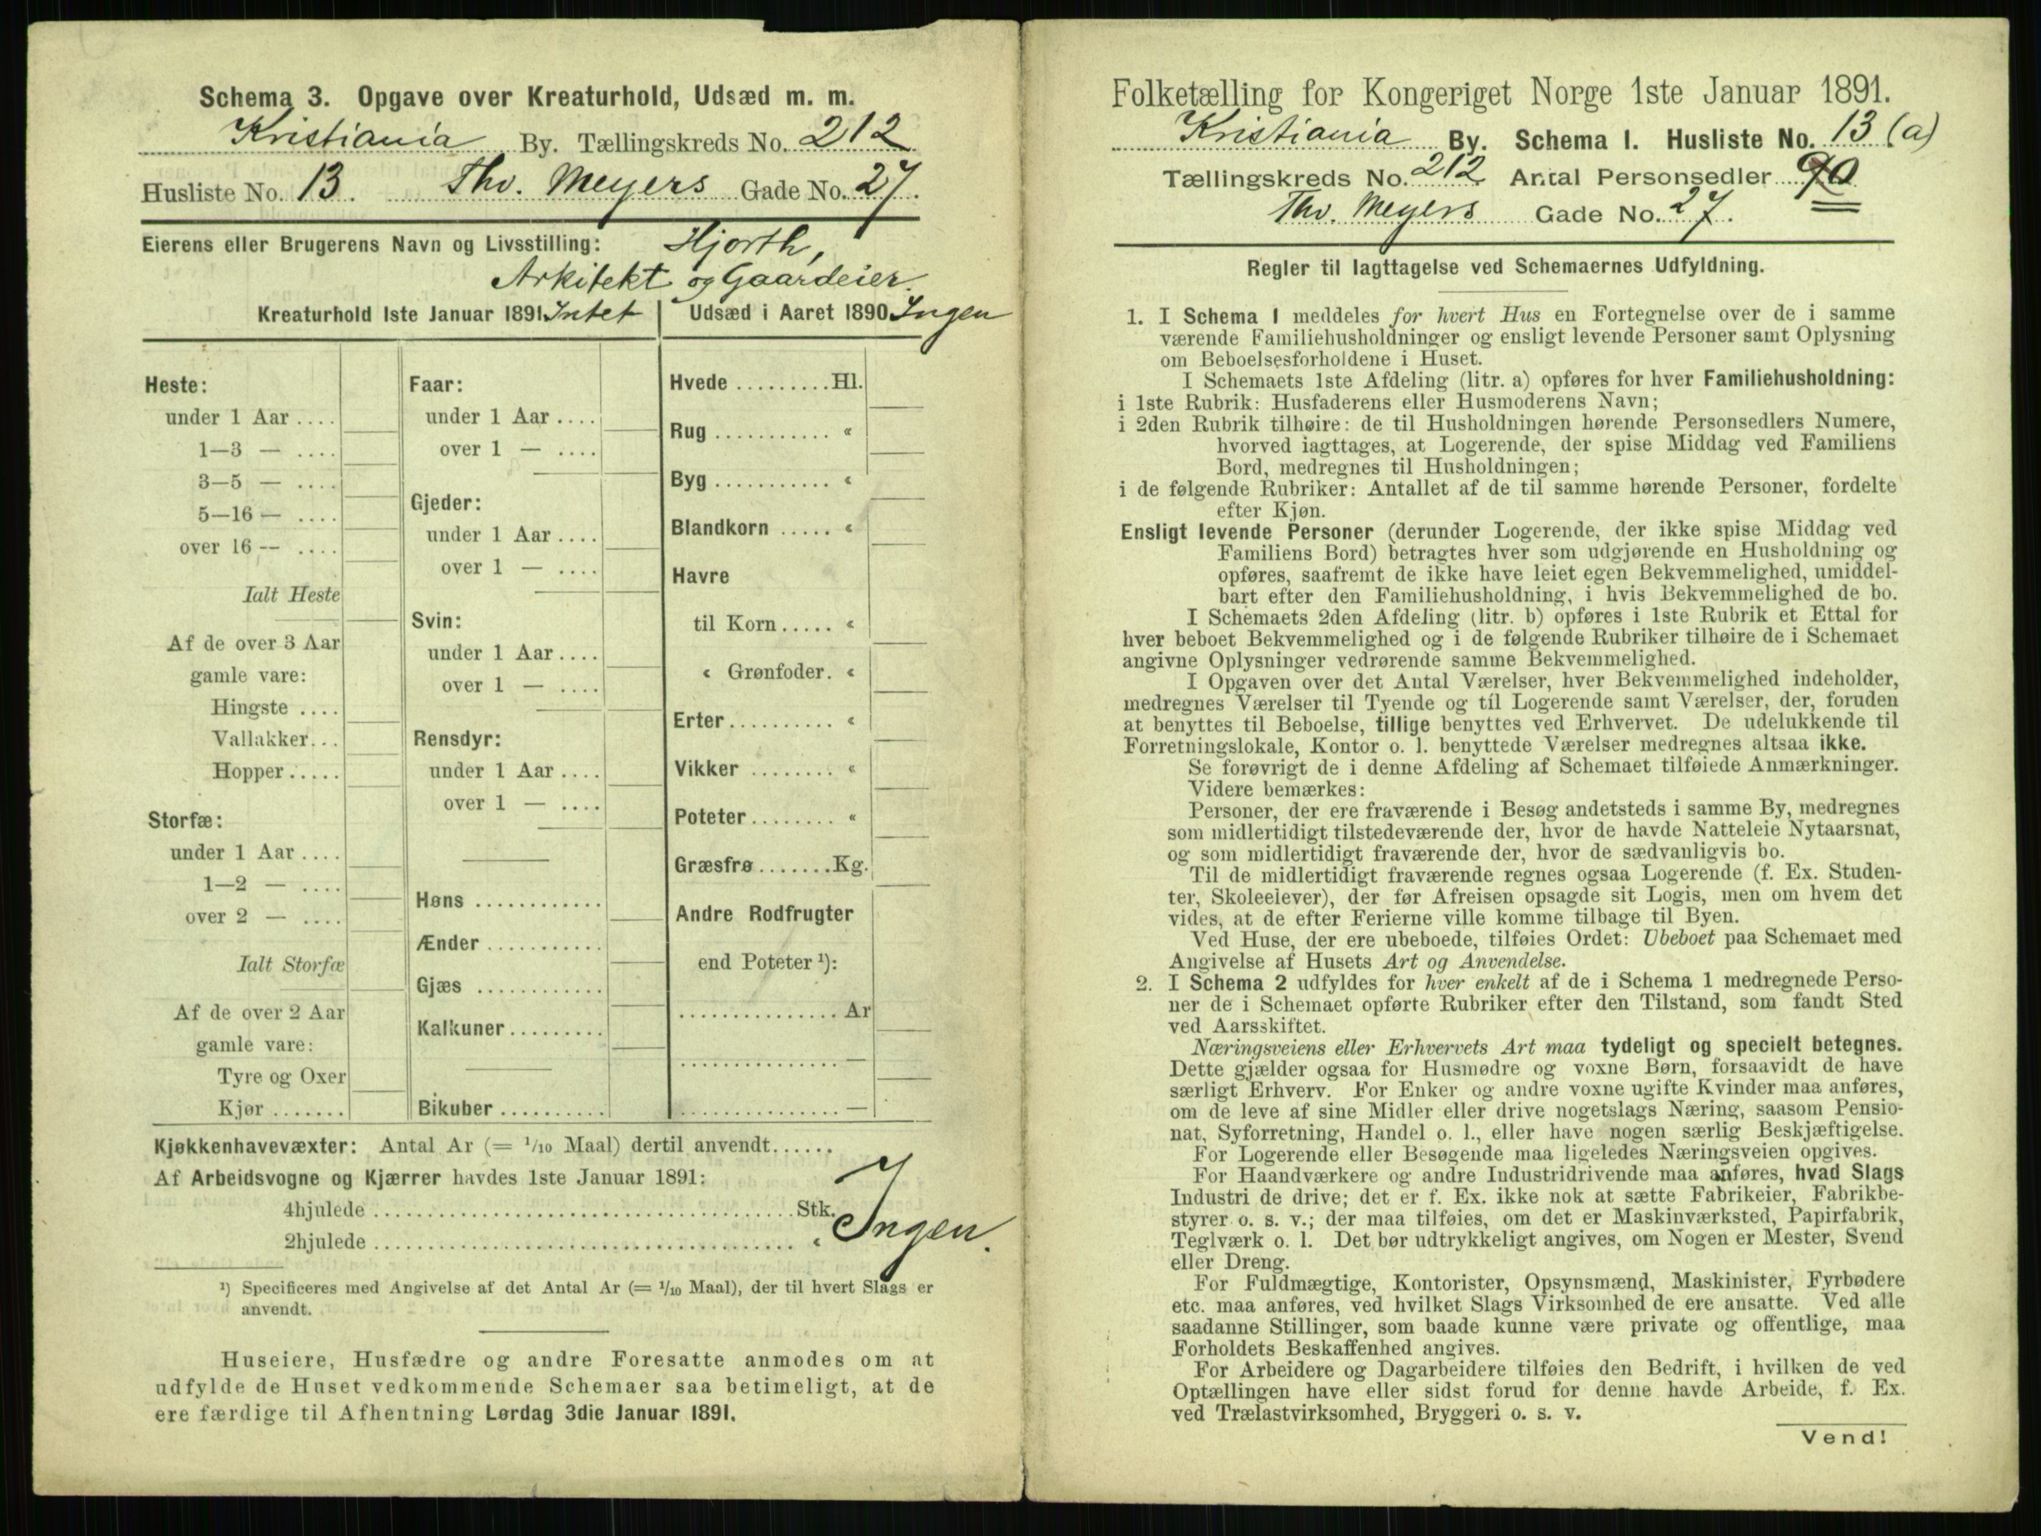 Schema 3. Opgave over Kreaturhold, Udsæd m. m.
Kristiania By. Tællingskreds No. 212
Husliste No. 13. Thv. Meyers Gade No. 27.
Eierens eller Brugerens Navn og Livsstilling: Hjorth,
Arkitekt og Gaardeier.
Kreaturhold 1ste Januar 1891 Intet
Heste:
under 1 Aar ....
1—3 — ....
3—5 — ....
5—16 — ....
over 16 — ....
Ialt Heste
Af de over 3 Aar
gamle vare:
Hingste ....
Vallakker...
Hopper.....
Storfæ:
under 1 Aar ....
1—2 — ....
over 2 — ....
Ialt Storfæ
Af de over 2 Aar
gamle vare:
Tyre og Oxer
Kjør.......
Faar:
under 1 Aar ....
over 1 — ....
Gjeder:
under 1 Aar ....
over 1 — ....
Svin:
under 1 Aar ....
over 1 — ....
Rensdyr:
under 1 Aar ....
over 1 — ....
Høns ............
Ænder ...........
Gjæs ............
Kalkuner.........
Bikuber ..........
Udsæd i Aaret 1890 Ingen
Hvede .........Hl.
Rug ........... «
Byg ........... «
Blandkorn ..... «
Havre
til Korn..... «
« Grønfoder. «
Erter.......... «
Vikker ........ «
Poteter........ «
Græsfrø.......Kg.
Andre Rodfrugter
end Poteter ¹):
............... Ar
............... —
............... —
Kjøkkenhavevæxter: Antal Ar (= 1/10 Maal) dertil anvendt......
Af Arbeidsvogne og Kjærrer havdes 1ste Januar 1891:
4hjulede ......................................Stk.
2hjulede ...................................... « Ingen.
¹) Specificeres med Angivelse af det Antal Ar (= 1/10 Maal), der til hvert Slags er
anvendt.
Huseiere, Husfædre og andre Foresatte anmodes om at
udfylde de Huset vedkommende Schemaer saa betimeligt, at de
ere færdige til Afhentning Lørdag 3die Januar 1891.
Folketælling for Kongeriget Norge 1ste Januar 1891.
Kristiania By. Schema I. Husliste No. 13 (a)
Tællingskreds No. 212 Antal Personsedler 90
Thv. Meyers Gade No. 27.
Regler til Iagttagelse ved Schemaernes Udfyldning.
1. I Schema 1 meddeles for hvert Hus en Fortegnelse over de i samme
værende Familiehusholdninger og ensligt levende Personer samt Oplysning
om Beboelsesforholdene i Huset.
I Schemaets 1ste Afdeling (litr. a) opføres for hver Familiehusholdning:
i 1ste Rubrik: Husfaderens eller Husmoderens Navn;
i 2den Rubrik tilhøire: de til Husholdningen hørende Personsedlers Numere,
hvorved iagttages, at Logerende, der spise Middag ved Familiens
Bord, medregnes til Husholdningen;
i de følgende Rubriker: Antallet af de til samme hørende Personer, fordelte
efter Kjøn.
Ensligt levende Personer (derunder Logerende, der ikke spise Middag ved
Familiens Bord) betragtes hver som udgjørende en Husholdning og
opføres, saafremt de ikke have leiet egen Bekvemmelighed, umiddel-
bart efter den Familiehusholdning, i hvis Bekvemmelighed de bo.
I Schemaets 2den Afdeling (litr. b) opføres i 1ste Rubrik et Ettal for
hver beboet Bekvemmelighed og i de følgende Rubriker tilhøire de i Schemaet
angivne Oplysninger vedrørende samme Bekvemmelighed.
I Opgaven over det Antal Værelser, hver Bekvemmelighed indeholder,
medregnes Værelser til Tyende og til Logerende samt Værelser, der, foruden
at benyttes til Beboelse, tillige benyttes ved Erhvervet. De udelukkende til
Forretningslokale, Kontor o. l. benyttede Værelser medregnes altsaa ikke.
Se forøvrigt de i denne Afdeling af Schemaet tilføiede Anmærkninger.
Videre bemærkes:
Personer, der ere fraværende i Besøg andetsteds i samme By, medregnes
som midlertidigt tilstedeværende der, hvor de havde Natteleie Nytaarsnat,
og som midlertidigt fraværende der, hvor de sædvanligvis bo.
Til de midlertidigt fraværende regnes ogsaa Logerende (f. Ex. Studen-
ter, Skoleelever), der før Afreisen opsagde sit Logis, men om hvem det
vides, at de efter Ferierne ville komme tilbage til Byen.
Ved Huse, der ere ubeboede, tilføies Ordet: Ubeboet paa Schemaet med
Angivelse af Husets Art og Anvendelse.
2. I Schema 2 udfyldes for hver enkelt af de i Schema 1 medregnede Perso-
ner de i Schemaet opførte Rubriker efter den Tilstand, som fandt Sted
ved Aarsskiftet.
Næringsveiens eller Erhvervets Art maa tydeligt og specielt betegnes.
Dette gjælder ogsaa for Husmødre og voxne Børn, forsaavidt de have
særligt Erhverv. For Enker og andre voxne ugifte Kvinder maa anføres,
om de leve af sine Midler eller drive nogetslags Næring, saasom Pensio-
nat, Syforretning, Handel o. l., eller have nogen særlig Beskjæftigelse.
For Logerende eller Besøgende maa ligeledes Næringsveien opgives.
For Haandværkere og andre Industridrivende maa anføres, hvad Slags
Industri de drive; det er f. Ex. ikke nok at sætte Fabrikeier, Fabrikbe-
styrer o. s. v.; der maa tilføies, om det er Maskinværksted, Papirfabrik,
Teglværk o. l. Det bør udtrykkeligt angives, om Nogen er Mester, Svend
eller Dreng.
For Fuldmægtige, Kontorister, Opsynsmænd, Maskinister, Fyrbødere
etc. maa anføres, ved hvilket Slags Virksomhed de ere ansatte. Ved alle
saadanne Stillinger, som baade kunne være private og offentlige, maa
Forholdets Beskaffenhed angives.
For Arbeidere og Dagarbeidere tilføies den Bedrift, i hvilken de ved
Optællingen have eller sidst forud for denne havde Arbeide, f. Ex.
ved Trælastvirksomhed, Bryggeri o. s. v.
Vend!